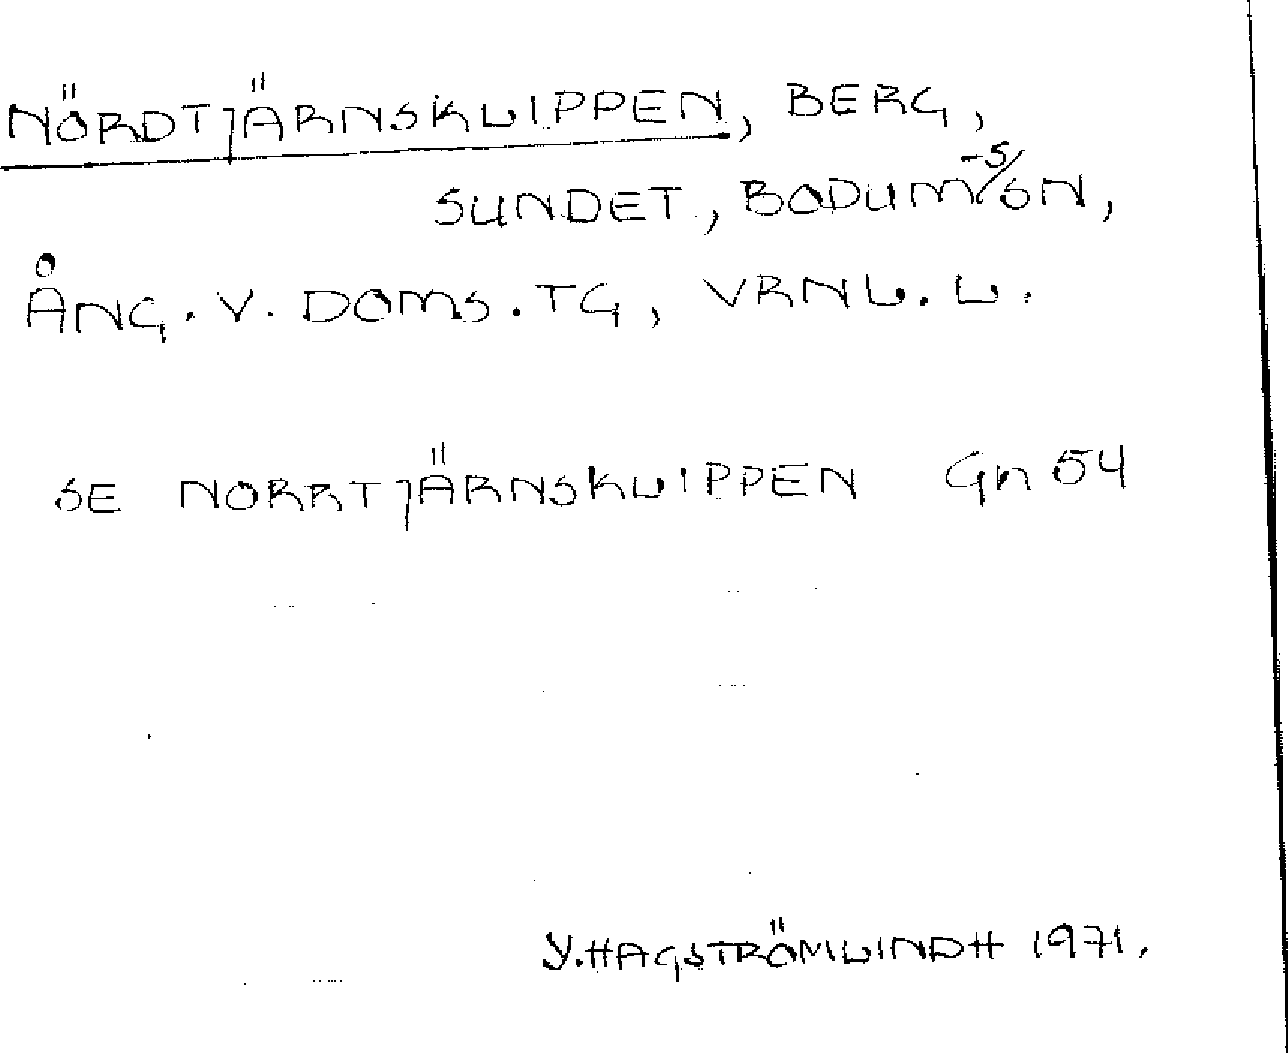 NÖRDTJÄRNSKLIPPEN, BERG,
SUNDET, BODUM-S/SN,
ÅNG. V. DOMS. TG, VRNL. L.
SE NORRTJÄRNSKLIPPEN Gn 54
Y. HAGSTRÖMLINDH 1971.